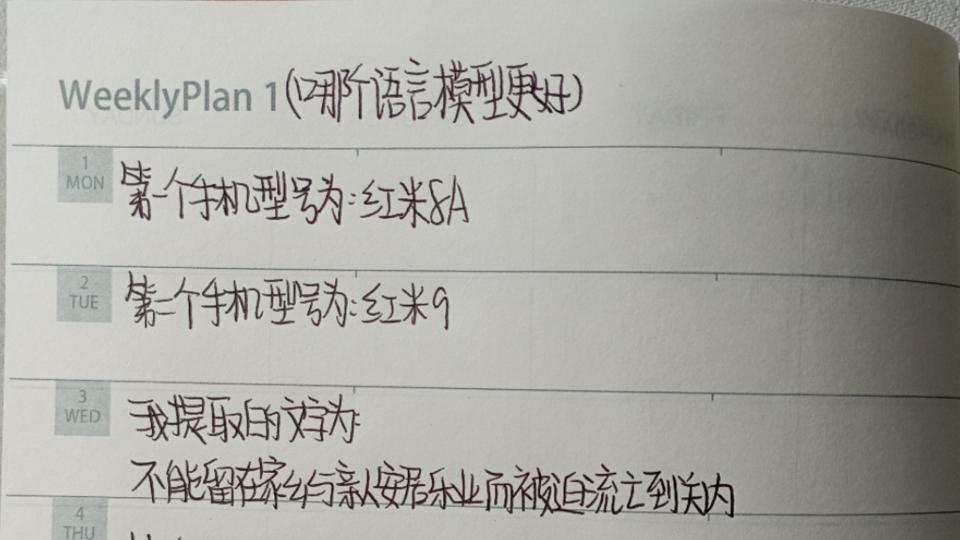 WeeklyPlan 1(哪个语言模型更好)
1
MON
第一个手机型号为:红米8A
2
TUE
第二个手机型号为:红米9
3
WED
我提取的文字为:
不能留在家乡与亲人安居乐业而被迫流亡到关内
4
THU